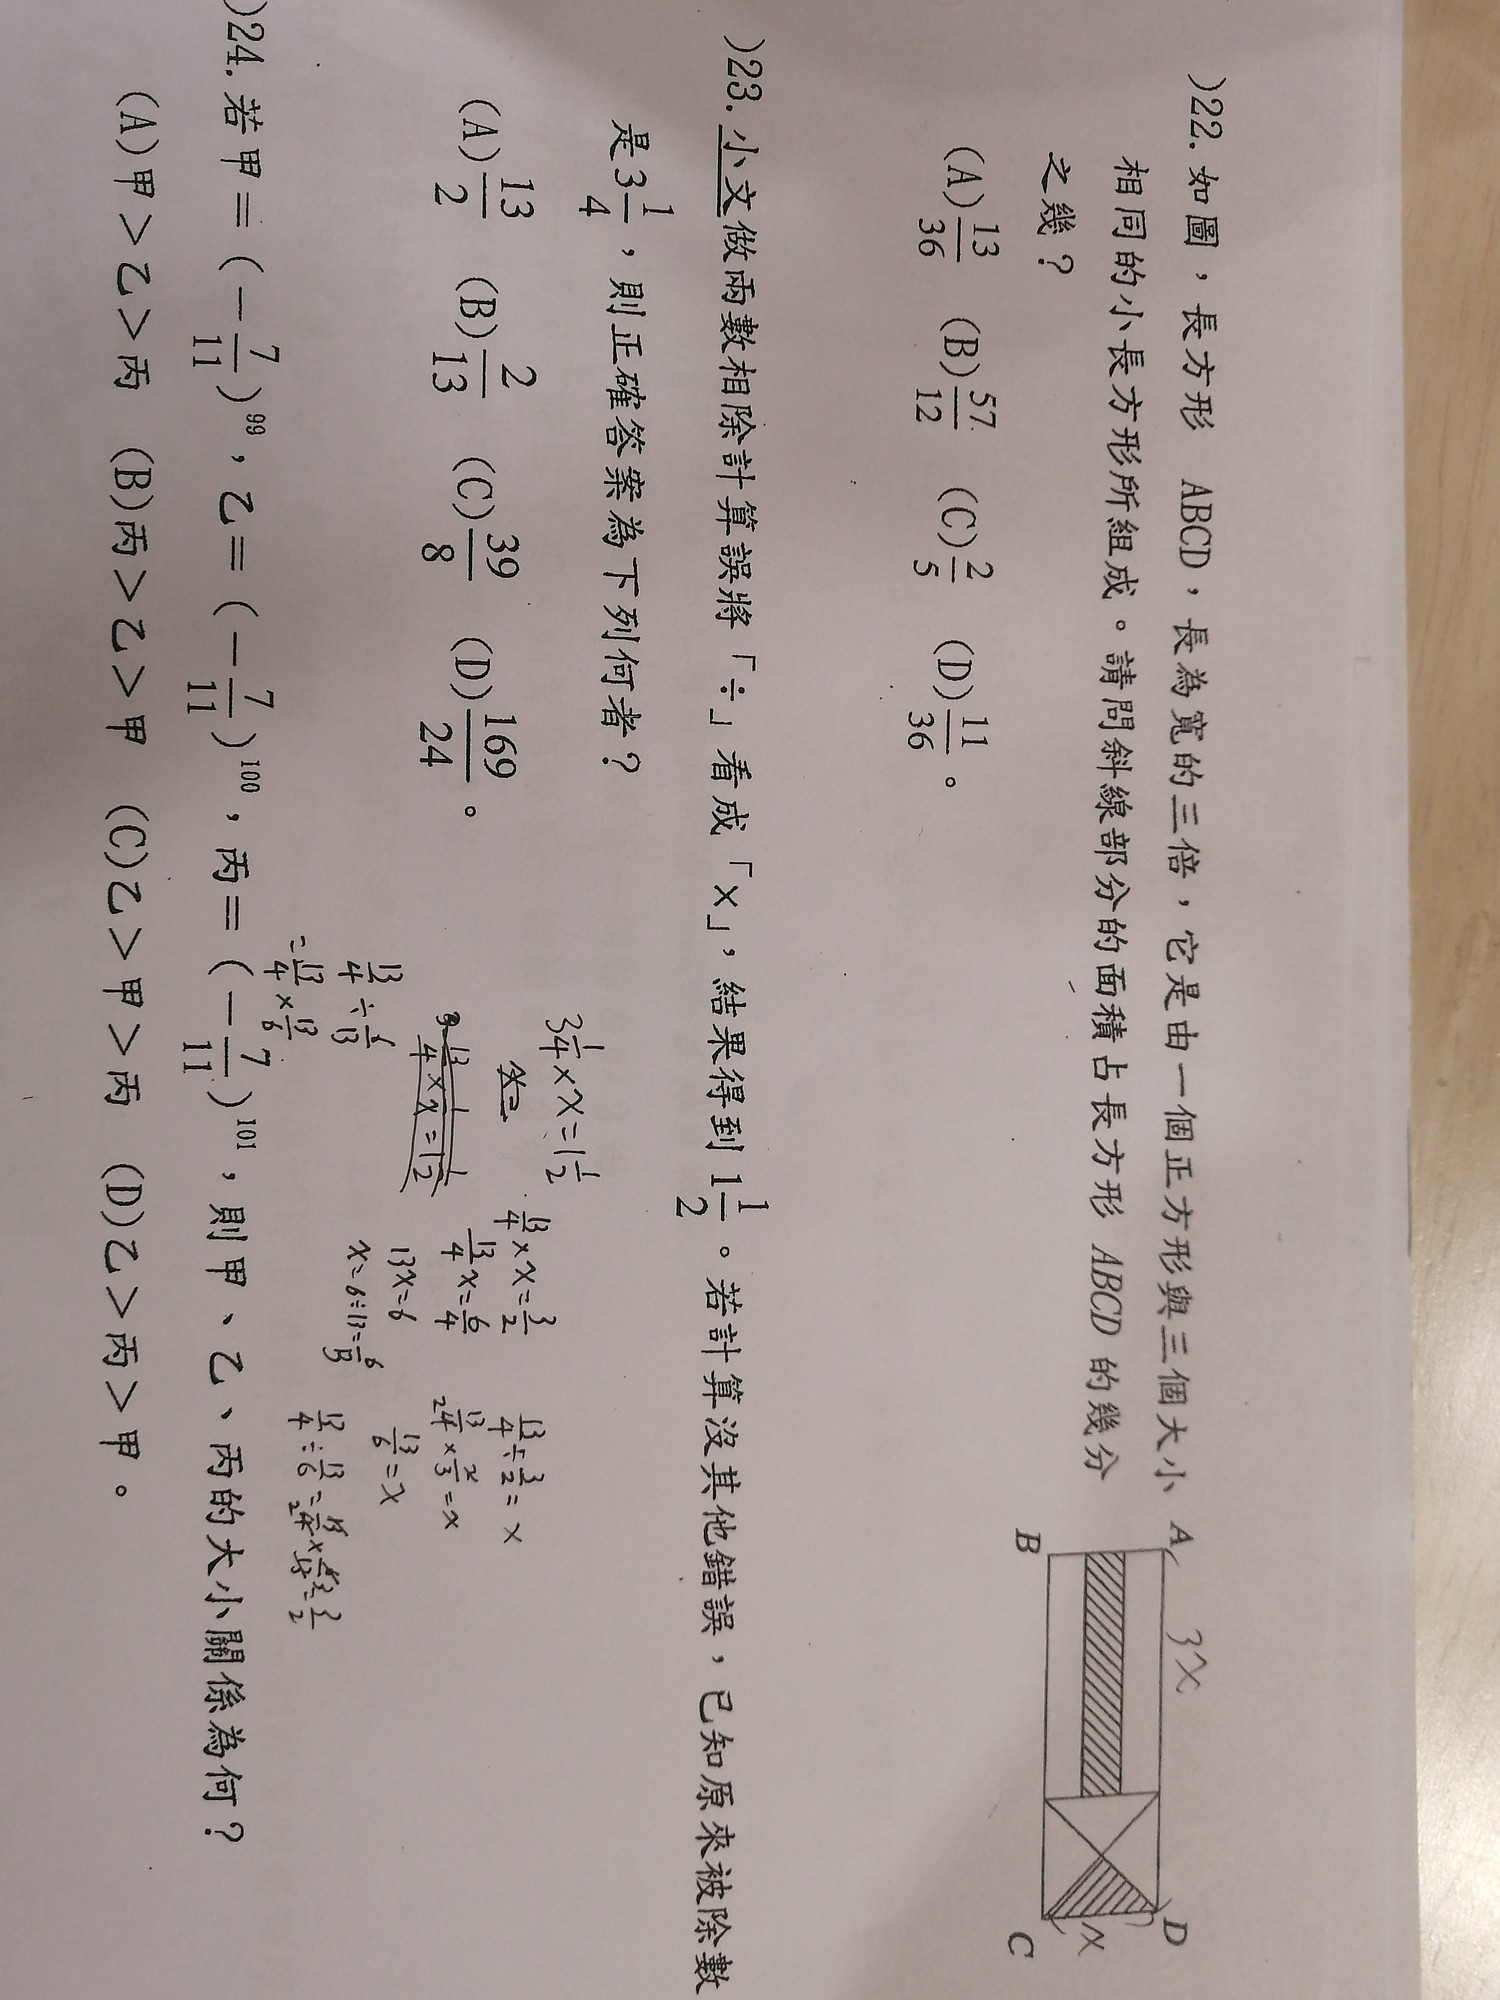 )22. 如圖，長方形 ABCD，長為寬的三倍，它是由一個正方形與三個大小
相同的小長方形所組成。請問斜線部分的面積占長方形 ABCD 的幾分
之幾？
(A) 13/36 (B) 57/12 (C) 2/5 (D) 11/36 。
A 3x D
B C x
)23. 小文做兩數相除計算誤將「÷」看成「×」，結果得到 1 1/2 。若計算沒其他錯誤，已知原來被除數
是 3 1/4 ，則正確答案為下列何者？
(A) 13/2 (B) 2/13 (C) 39/8 (D) 169/24 。
3 1/4 × x = 1 1/2
x =
13/4 × x = 1 1/2
13/4 ÷ 6/13
= 13/4 × 13/6
13/4 × x = 3/2
13/4 x = 6/4
13x = 6
x = 6 ÷ 13 = 6/13
13/4 ÷ 3/2 = x
13/24 × 2/3 = x
13/6 = x
)24. 若甲＝(－7/11)^99，乙＝(－7/11)^100，丙＝(－7/11)^101，則甲、乙、丙的大小關係為何？
(A)甲＞乙＞丙 (B)丙＞乙＞甲 (C)乙＞甲＞丙 (D)乙＞丙＞甲。